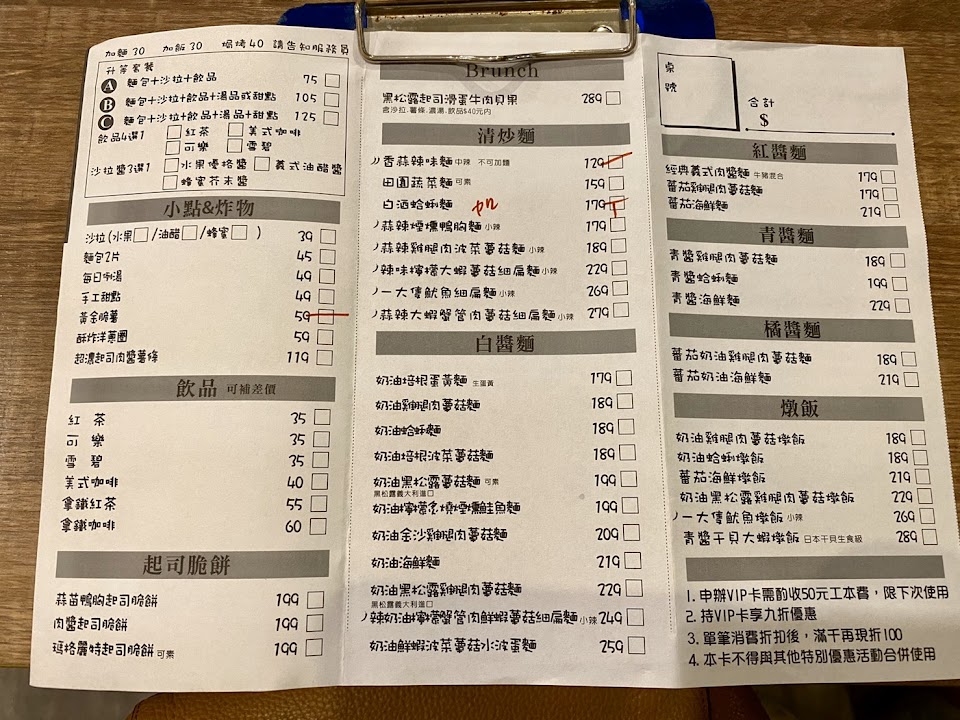 加麵30 加飯30 焗烤40 請告知服務員
升等套餐
A 麵包+沙拉+飲品 75
B 麵包+沙拉+飲品+湯品或甜點 105
C 麵包+沙拉+飲品+湯品+甜點 125
飲品4選1 紅茶 美式咖啡
可樂 雪碧
沙拉醬3選1 水果優格醬 義式油醋醬
蜂蜜芥末醬
小點&炸物
沙拉(水果/油醋/蜂蜜) 39
麵包2片 45
每日例湯 49
手工甜點 49
黃金脆薯 59
酥炸洋蔥圈 59
超濃起司肉醬薯條 119
飲品 可補差價
紅茶 35
可樂 35
雪碧 35
美式咖啡 40
拿鐵紅茶 55
拿鐵咖啡 60
起司脆餅
蒜苗鴨胸起司脆餅 199
肉醬起司脆餅 199
瑪格麗特起司脆餅 可素 199
Brunch
黑松露起司滑蛋牛肉貝果 289
含沙拉.薯條.濃湯.飲品$40元內
清炒麵
香蒜辣味麵 中辣 不可加麵 129
田園蔬菜麵 可素 159
白酒蛤蜊麵 179
蒜辣煙燻鴨胸麵 小辣 179
蒜辣雞腿肉波菜蘑菇麵 小辣 189
辣味檸檬大蝦蘑菇細扁麵 小辣 229
一大隻魷魚細扁麵 小辣 269
蒜辣大蝦蟹管肉蘑菇細扁麵 小辣 279
白醬麵
奶油培根蛋黃麵 生蛋黃 179
奶油雞腿肉蘑菇麵 189
奶油蛤蜊麵 189
奶油培根波菜蘑菇麵 189
奶油黑松露蘑菇麵 可素 199
黑松露義大利進口
奶油檸檬炙燒煙燻鮭魚麵 199
奶油金沙雞腿肉蘑菇麵 209
奶油海鮮麵 219
奶油黑松露雞腿肉蘑菇麵 229
黑松露義大利進口
辣奶油檸檬蟹管肉鮮蝦蘑菇細扁麵 小辣 249
奶油鮮蝦波菜蘑菇水波蛋麵 259
桌號
合計
$
紅醬麵
經典義式肉醬麵 牛豬混合 179
蕃茄雞腿肉蘑菇麵 179
蕃茄海鮮麵 219
青醬麵
青醬雞腿肉蘑菇麵 189
青醬蛤蜊麵 199
青醬海鮮麵 229
橘醬麵
蕃茄奶油雞腿肉蘑菇麵 189
蕃茄奶油海鮮麵 219
燉飯
奶油雞腿肉蘑菇燉飯 189
奶油蛤蜊燉飯 189
蕃茄海鮮燉飯 219
奶油黑松露雞腿肉蘑菇燉飯 229
一大隻魷魚燉飯 小辣 269
青醬干貝大蝦燉飯 日本干貝生食級 289
1. 申辦VIP卡需酌收50元工本費，限下次使用
2. 持VIP卡享九折優惠
3. 單筆消費折扣後，滿千再現折100
4. 本卡不得與其他特別優惠活動合併使用